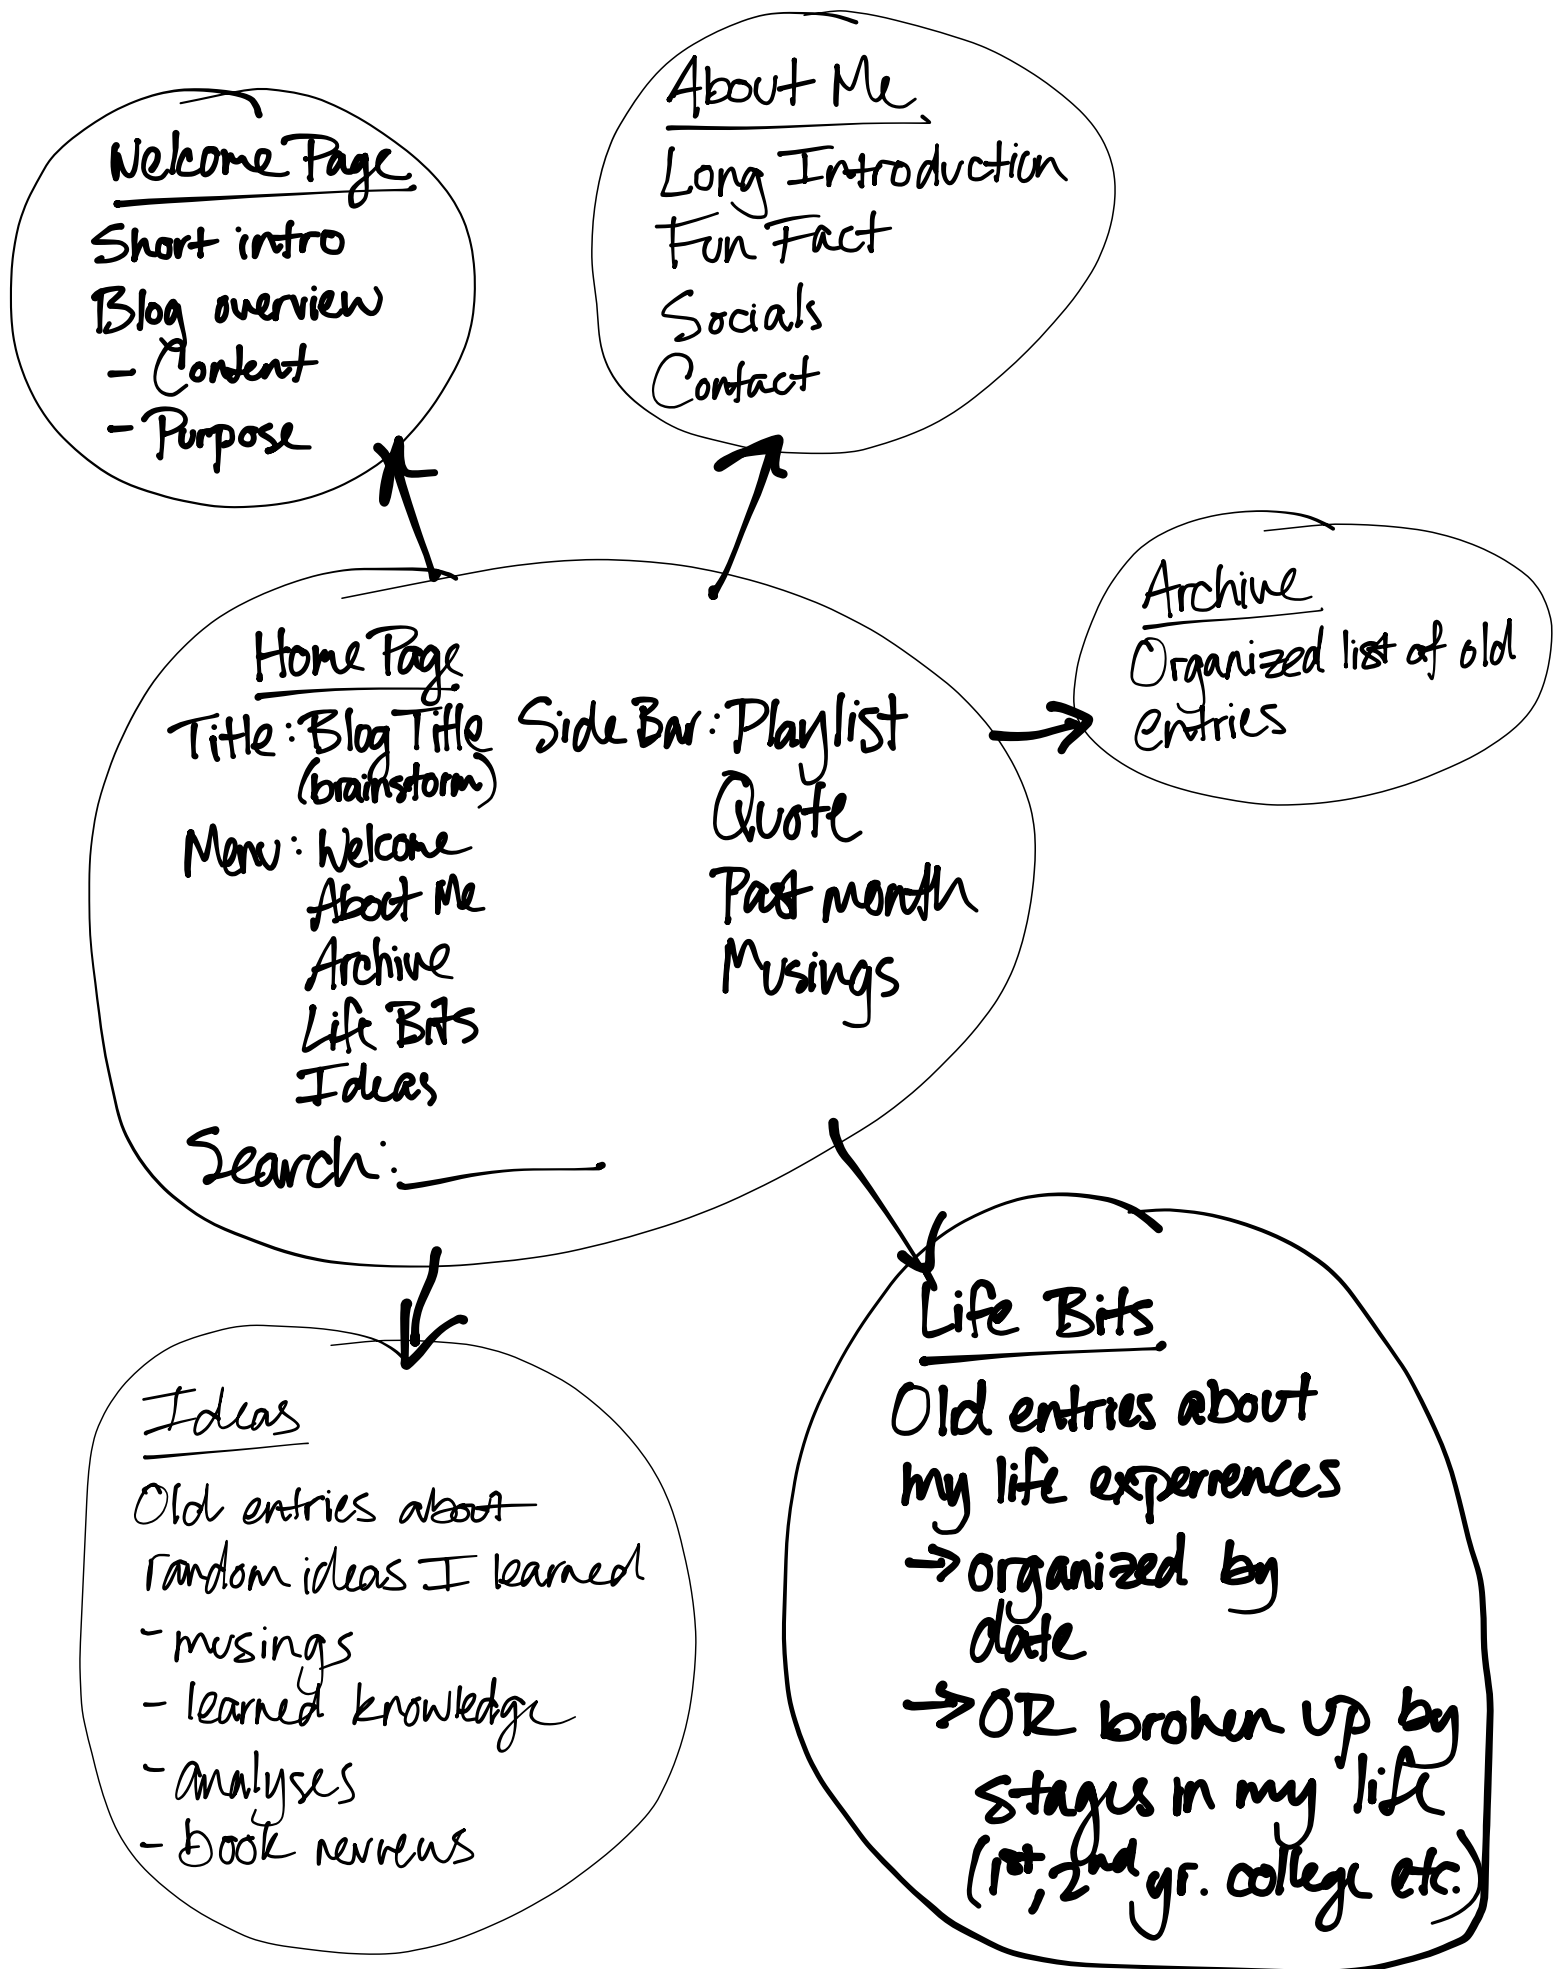 Welcome Page
Short intro
Blog overview
- Content
- Purpose
About Me
Long Introduction
Fun Fact
Socials
Contact
Archive
Organized list of old
entries
Home Page
Title: Blog Title
(brainstorm)
Menu: Welcome
About Me
Archive
Life Bits
Ideas
Search:
Side Bar: Playlist
Quote
Past month
Musings
Ideas
Old entries about
random ideas I learned
- musings
- learned knowledge
- analyses
- book reviews
Life Bits
Old entries about
my life experiences
→ organized by
date
→ OR broken up by
stages in my life
(1st, 2nd yr. college etc.)